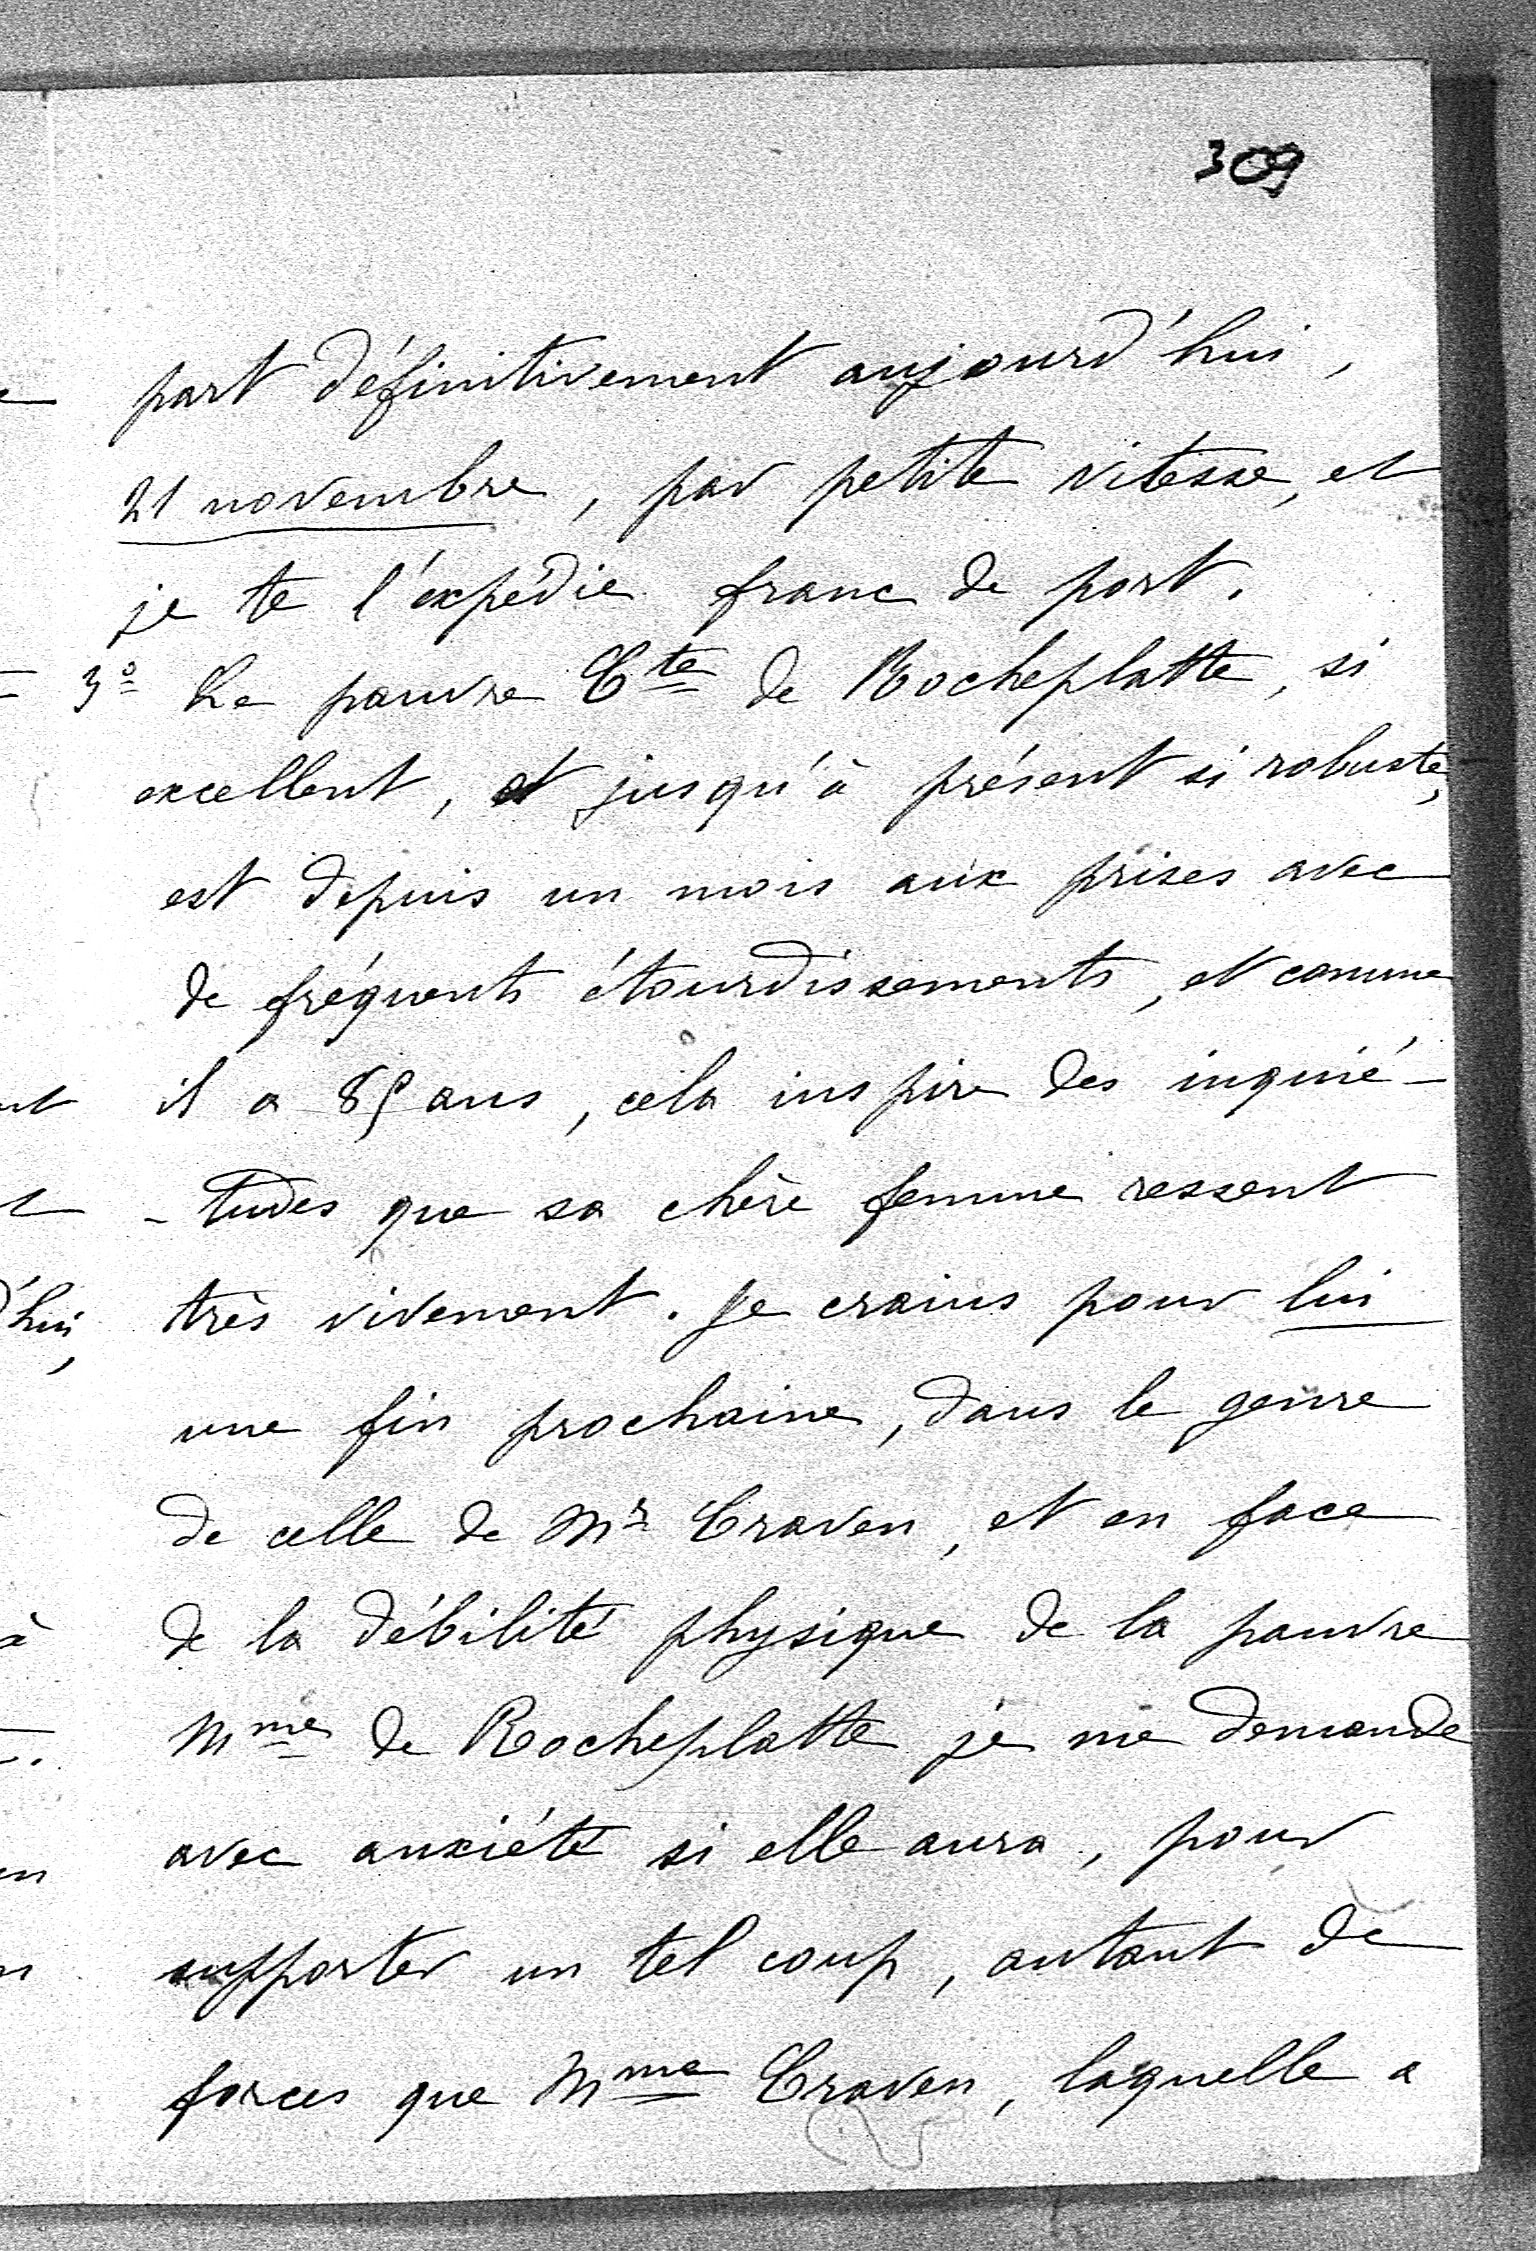 309
part définitivement aujourd'hui,
21 novembre, par petite vitesse, et
je te l'expédie franc de port.
3º Le pauvre Cte de Rocheplatte, si
excellent, et jusqu'à présent si robuste,
est depuis un mois aux prises avec
de fréquents étourdissements, et comme
il a ans, cela inspire des inquié-
-tudes que sa chère femme ressent
très vivement. Je crains pour lui
une fin prochaine, dans le genre
de celle de Mr Craven, et en face
de la débilité physique de la pauvre
Mme de Rocheplatte je me demande
avec anxiété si elle aura, pour
supporter un tel coup, autant de
forces que Mme Craven, laquelle a